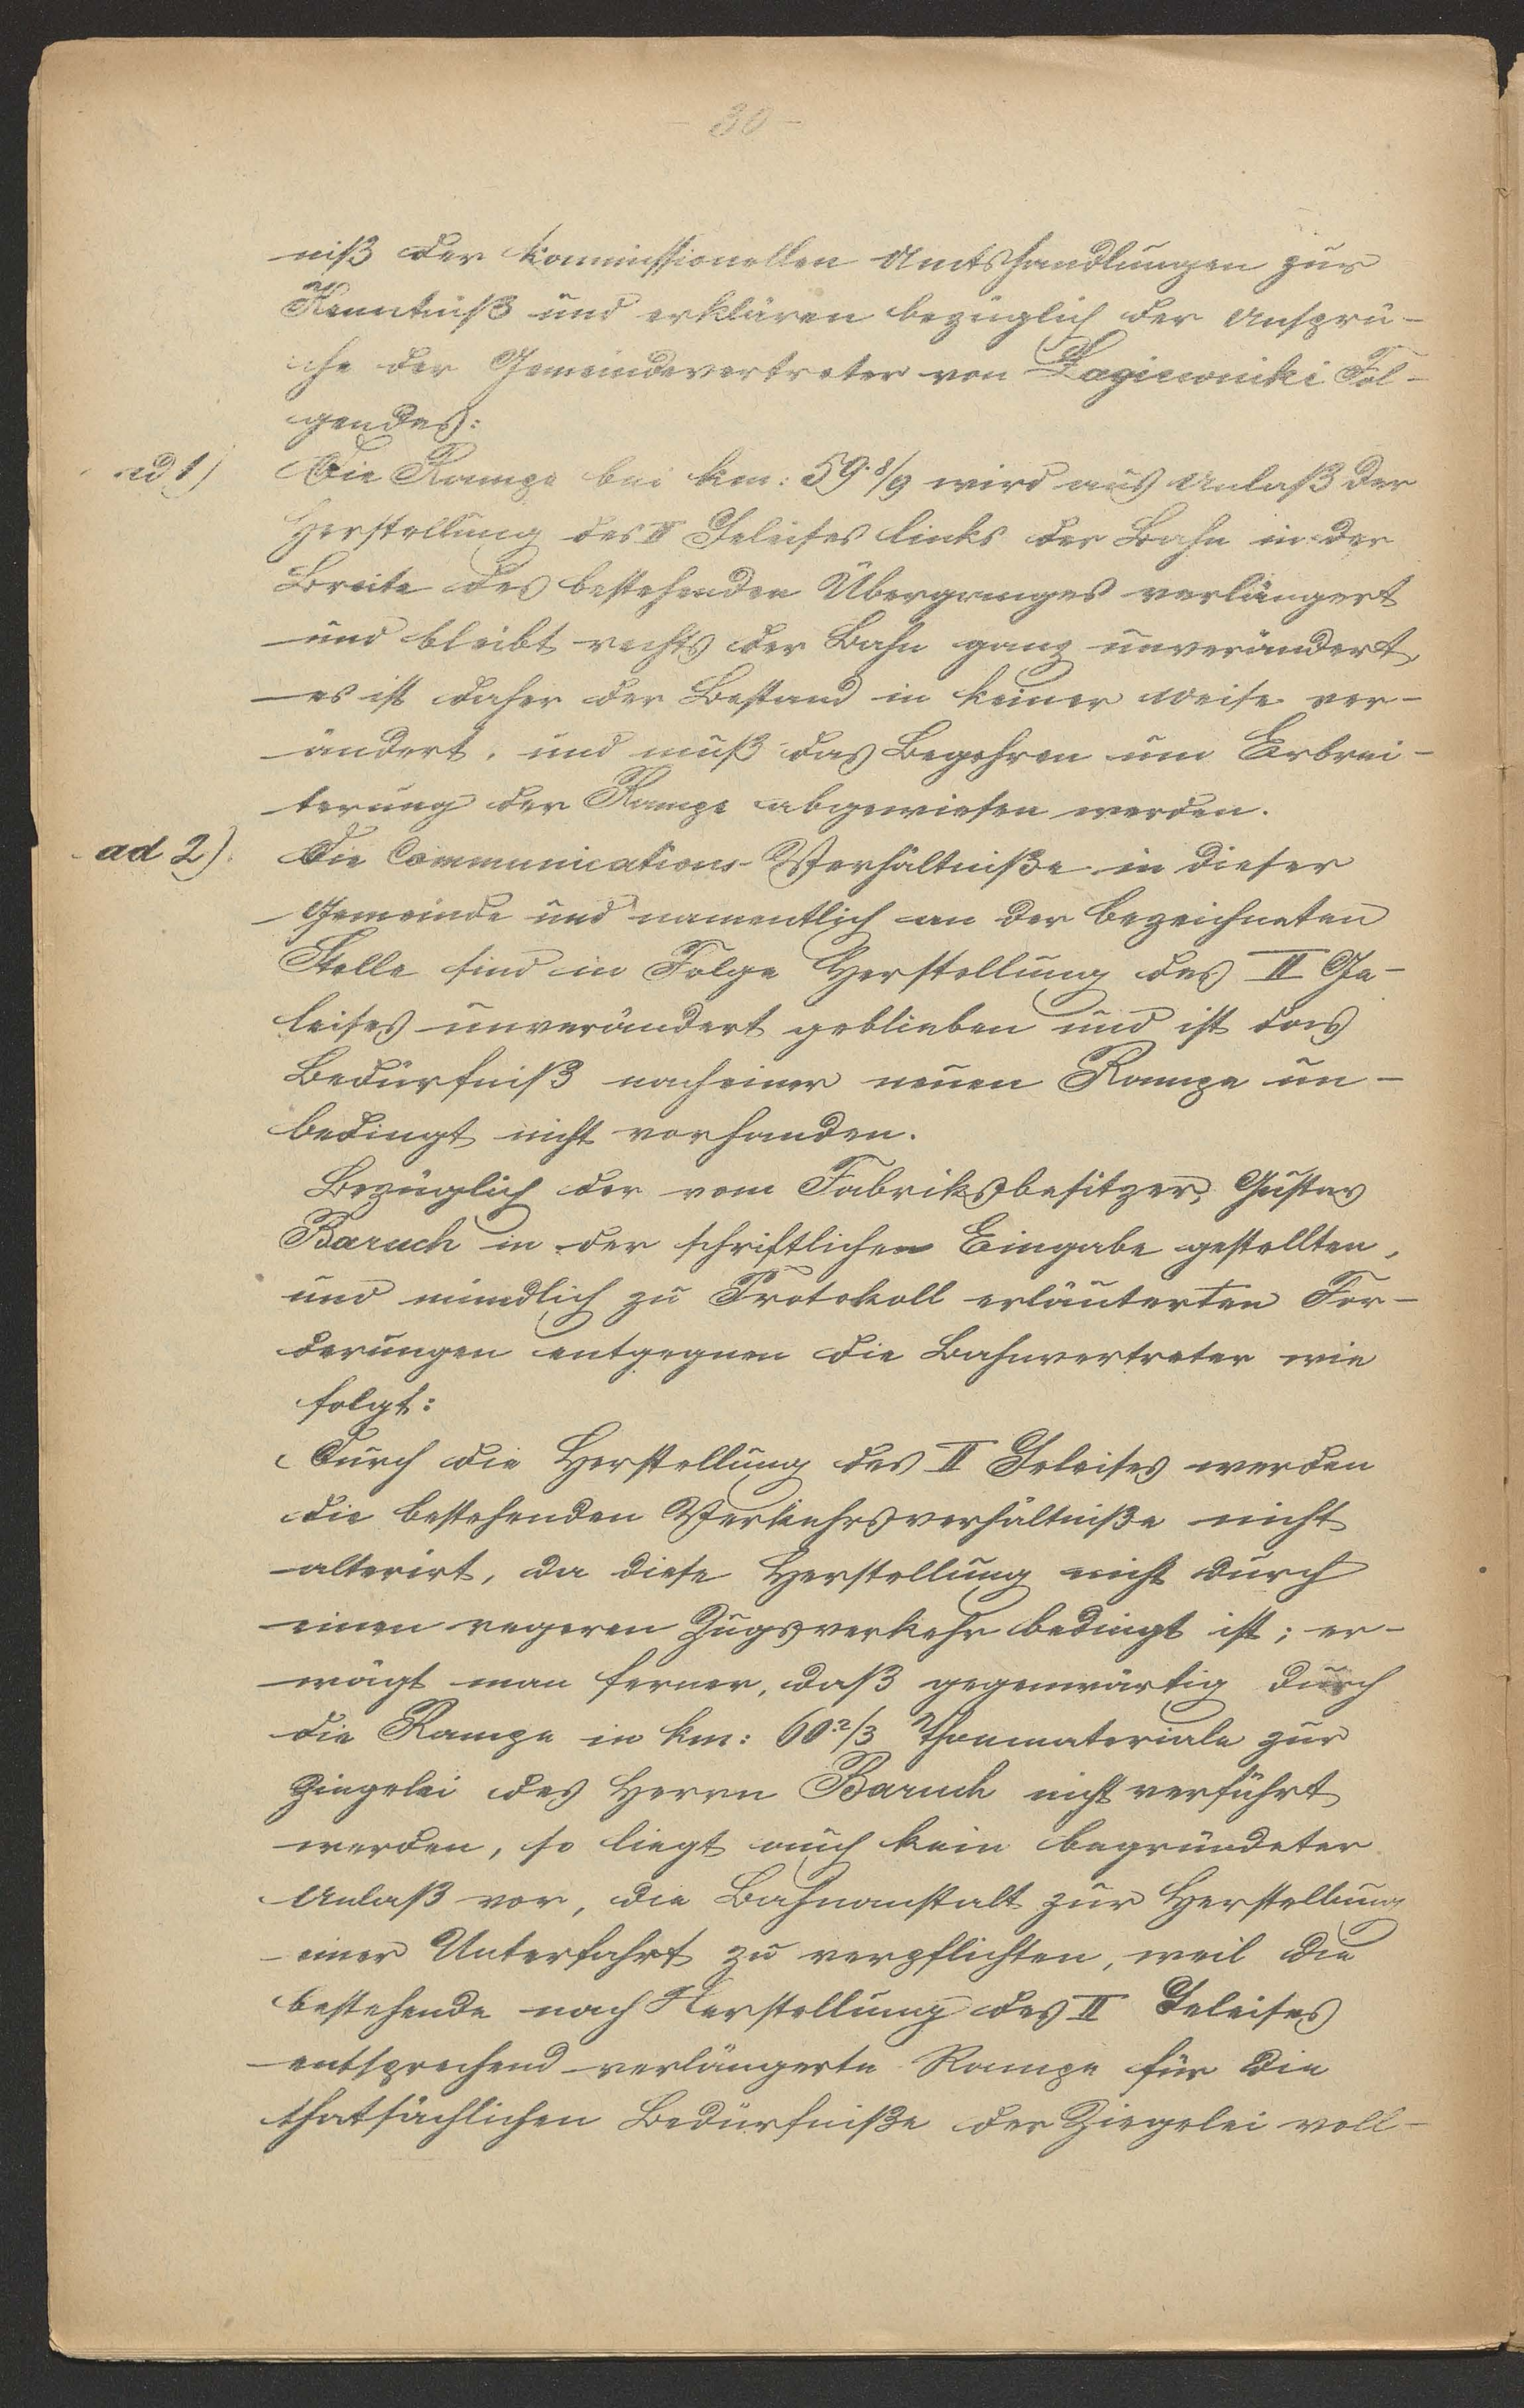 - 30 -
niß der kommissionellen Amtshandlungen zur
Kenntniß und erklären bezüglich der Ansprü-
che der Gemeindevertreter von Łagiewniki Fol-
gendes:
ad 1) Die Rampe bei km: 59.8/9 wird aus Anlaß der
Herstellung des II Geleises links der Bahn in der
Breite des bestehenden Überganges verlängert
und bleibt rechts der Bahn ganz unverändert,
es ist daher der Bestand in keiner Weise ver-
ändert, und muß das Begehren um Erbrei-
terung der Rampe abgewiesen werden.
ad 2). Die Communications-Verhältniße in dieser
Gemeinde und namentlich an der bezeichneten
Stelle sind in Folge Herstellung des II Ge-
leises unverändert geblieben und ist das
Bedürfniß nach einer neuen Rampe un-
bedingt nicht vorhanden.
Bezüglich der vom Fabriksbesitzer Gustav
Baruch in der schriftlichen Eingabe gestellten,
und mündlich zu Protokoll erläuterten For-
derungen entgegnen die Bahnvertreter wie
folgt:
Durch die Herstellung des II Geleises werden
die bestehenden Verkehrsverhältniße nicht
alterirt, da diese Herstellung nicht durch
einen regeren Zugsverkehr bedingt ist; er-
wägt man ferner, daß gegenwärtig durch
die Rampe in km: 60.2/3 Thonmateriale zur
Ziegelei des Herrn Baruch nicht verführt
werden, so liegt auch kein begründeter
Anlaß vor, die Bahnanstalt zur Herstellung
einer Unterfahrt zu verpflichten, weil die
bestehende nach Herstellung des II Geleises
entsprechend verlängerte Rampe für die
thatsächlichen Bedürfniße der Ziegelei voll-